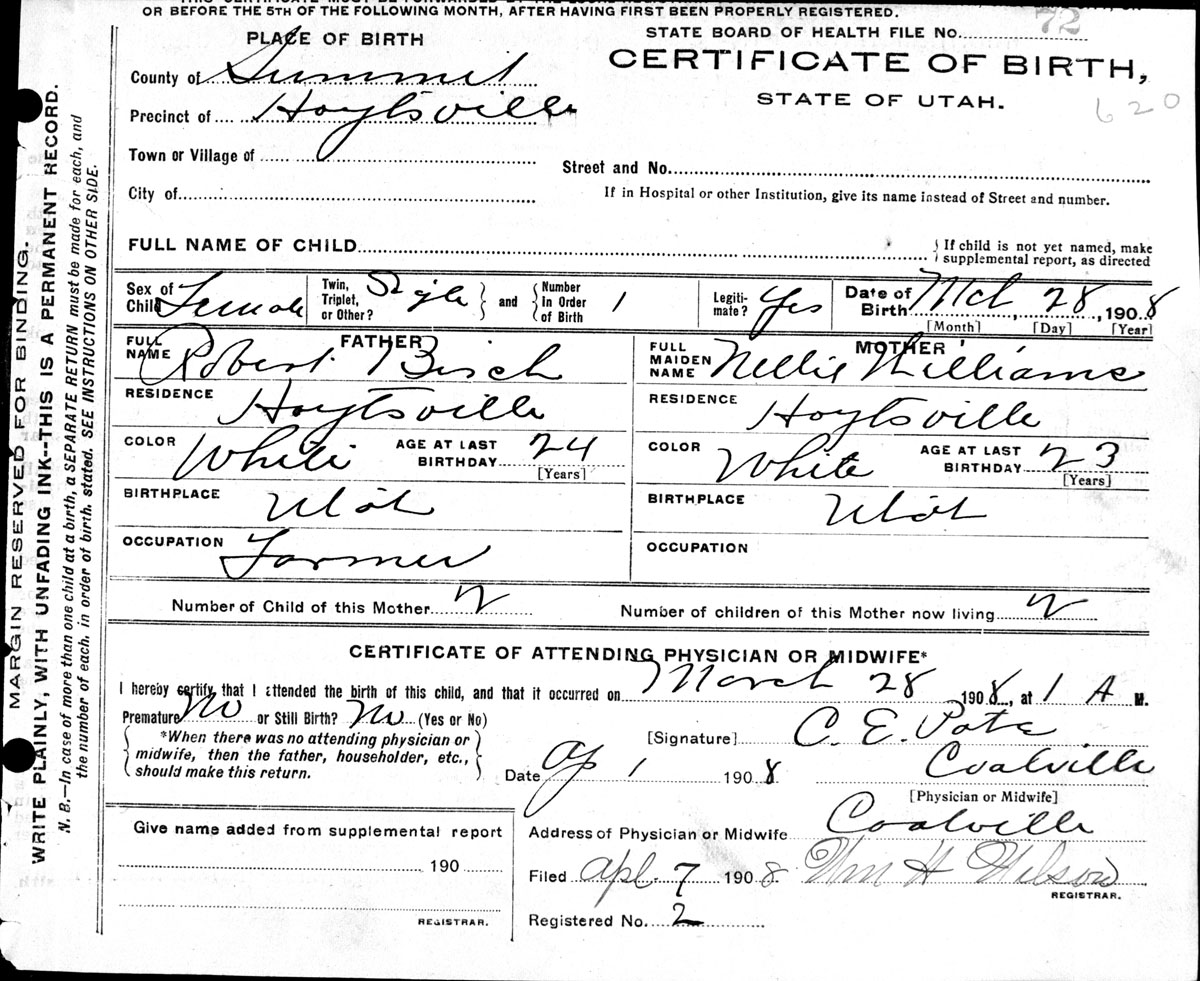 OR BEFORE THE 5TH OF THE FOLLOWING MONTH, AFTER HAVING FIRST BEEN PROPERLY REGISTERED.
PLACE OF BIRTH
STATE BOARD OF HEALTH FILE NO. 72
CERTIFICATE OF BIRTH,
STATE OF UTAH.
620
County of Summit
Precinct of Hoytsville
Town or Village of
Street and No.
City of
If in Hospital or other Institution, give its name instead of Street and number.
FULL NAME OF CHILD
{ If child is not yet named, make
supplemental report, as directed
Sex of Child Female
Twin, Triplet, or Other? Single } and { Number In Order of Birth 1
Legiti-mate? Yes
Date of Birth Mch 28, 1908
[Month] [Day] [Year]
FATHER
FULL NAME Robert Birch
RESIDENCE Hoytsville
COLOR White AGE AT LAST BIRTHDAY 24
[Years]
BIRTHPLACE Utah
OCCUPATION Farmer
MOTHER
FULL MAIDEN NAME Nellie Williams
RESIDENCE Hoytsville
COLOR White AGE AT LAST BIRTHDAY 23
[Years]
BIRTHPLACE Utah
OCCUPATION
Number of Child of this Mother 2 Number of children of this Mother now living 2
CERTIFICATE OF ATTENDING PHYSICIAN OR MIDWIFE*
I hereby certify that I attended the birth of this child, and that it occurred on March 28 1908, at 1 A M.
Premature No or Still Birth? No (Yes or No)
{ *When there was no attending physician or
midwife, then the father, householder, etc.,
should make this return. }
[Signature] C. E. Pate
Date Ap 1 1908 Coalville
[Physician or Midwife]
Give name added from supplemental report
190
REGISTRAR.
Address of Physician or Midwife Coalville
Filed Apl 7 1908 Wm H Wilson
REGISTRAR.
Registered No. 2
MARGIN RESERVED FOR BINDING.
WRITE PLAINLY, WITH UNFADING INK--THIS IS A PERMANENT RECORD.
N. B.—In case of more than one child at a birth, a SEPARATE RETURN must be made for each, and
the number of each, in order of birth, stated. SEE INSTRUCTIONS ON OTHER SIDE.